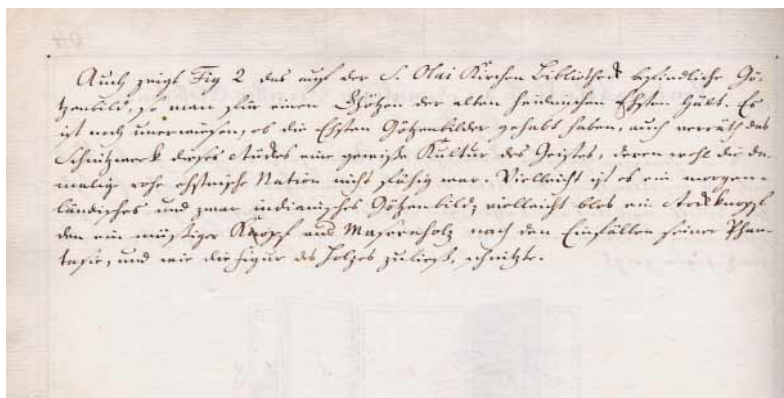 Auch zeigt Fig 2 das auf der S. Olai Kirchen Bibliothek befindliche Gö-
tzenbild, so man für einen Götzen der alten heidnischen Ehsten hält. Es
ist noch unerwiesen, ob die Ehsten Götzenbilder gehabt haben, auch verräth das
Schnitzwerk dieses Stückes eine gewisse Kultur des Geistes, deren wohl die da-
malige rohe ehstnische Nation nicht fähig war. Vielleicht ist es ein morgen-
ländisches und zwar indianisches Götzenbild; vielleicht blos ein Stockknopf
den ein müssiger Kopf aus Masernholz nach den Einfällen seiner Phan-
tasie, und wie die Figur des Holzes zuließ, schnitzte.